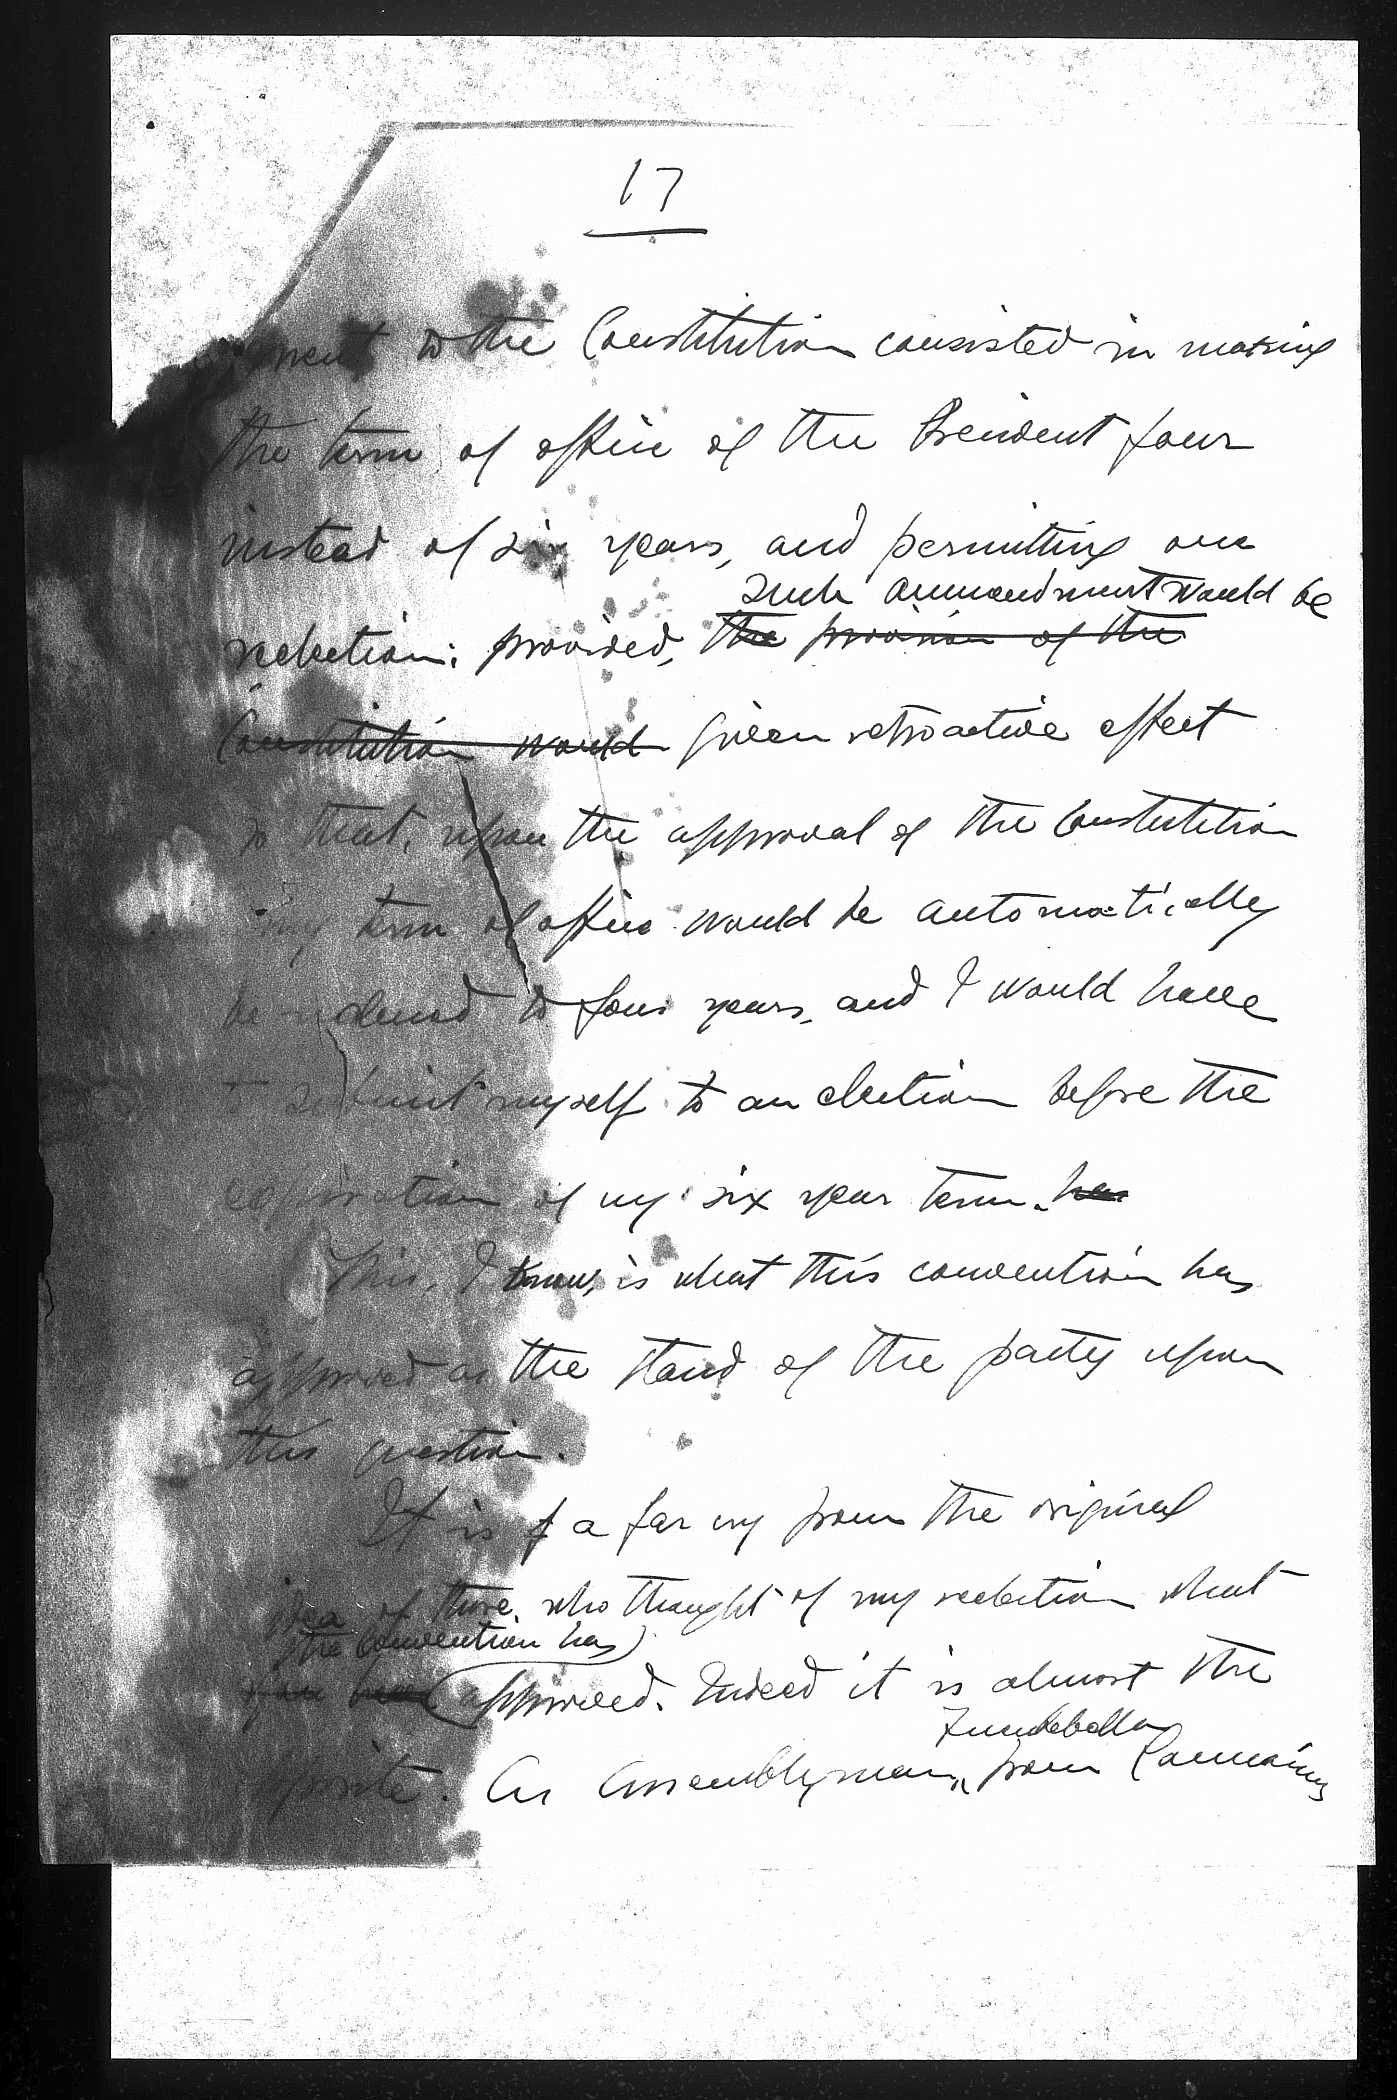 17
ment to the Constitution consisted in making
the term of office of the President four
instead of six years, and permitting one
such ammendment would be
reelection: provided, the provision of the
Constitution would given retroactive effect
so that, upon the approval of the Constitution
my term of office would be automatically
be reduced to four years, and I would have
to submit myself to an election before the
expiration of my six year term. has
This, I know, is what this convention has
approved as the stand of the party upon
this question.
It is f a far cry from the original
idea of those who thought of my reelection what
the Convention has
approved. Indeed it is almost the
opposite. An Assemblyman, from Camarines